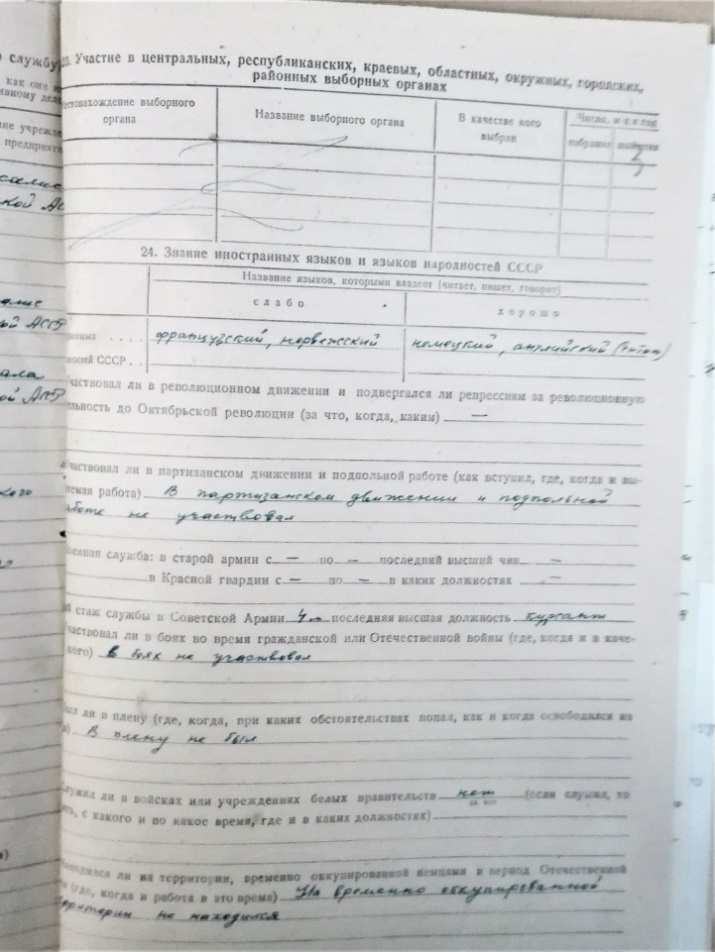 службу
23. Участие в центральных, республиканских, краевых, областных, окружных, городских,
районных выборных органах
как она
ние учрежд
предприяти
естонахождение выборного
органа
Название выборного органа
В качестве кого
выбран
Число, м-ц и год
избрания
выбытия
24. Знание иностранных языков и языков народностей СССР
Название языков, которыми владеет (читает, пишет, говорит)
слабо
хорошо
французский, норвежский
немецкий, английский (читаю)
ностей СССР . .
частвовал ли в революционном движении и подвергался ли репрессиям за революционную
льность до Октябрьской революции (за что, когда, каким) —
частвовал ли в партизанском движении и подпольной работе (как вступил, где, когда и вы-
яемая работа) В партизанском движении и подпольной
аботе не участвовал
енная служба: в старой армии с — по — последний высший чин —
в Красной гвардии с — по — в каких должностях —
й стаж службы в Советской Армии последняя высшая должность курсант
частвовал ли в боях во время гражданской или Отечественной войны (где, когда и в каче-
кого) в боях не участвовал
ыл ли в плену (где, когда, при каких обстоятельствах попал, как и когда освободился из
В плену не был
Служил ли в войсках или учреждениях белых правительств нет (если служил, то
да, нет
с какого и по какое время, где и в каких должностях)
аходился ли на территории, временно оккупированной немцами в период Отечественной
(где, когда и работа в это время) На временно оккупированной
территории не находился